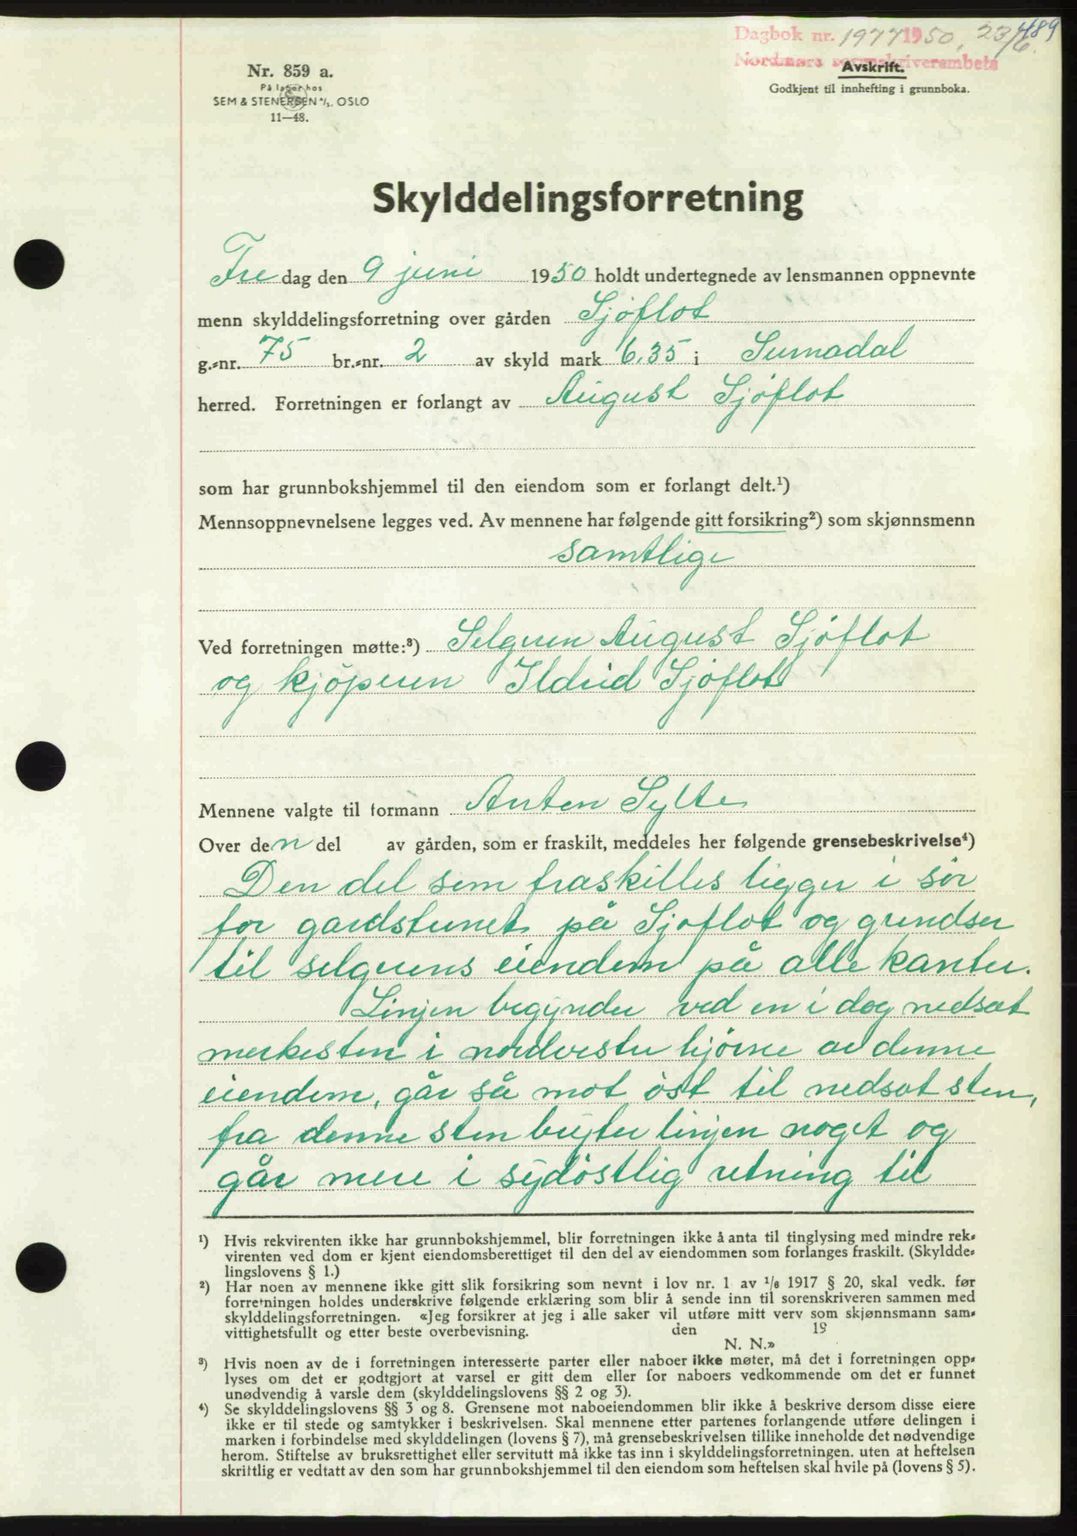 Dagbok nr. 1977 1950, 23/6. 489
Nordmøre sorenskriverembete
Nr. 859 a.
På lager hos
SEM & STENERSEN A/S, OSLO
11—48.
Avskrift.
Godkjent til innhefting i grunnboka.
Skylddelingsforretning
Fre dag den 9 juni 1950 holdt undertegnede av lensmannen oppnevnte
menn skylddelingsforretning over gården Sjøflot
g.-nr. 75 br.-nr. 2 av skyld mark 6.35 i Surnadal
herred. Forretningen er forlangt av August Sjøflot
som har grunnbokshjemmel til den eiendom som er forlangt delt.¹)
Mennsoppnevnelsene legges ved. Av mennene har følgende gitt forsikring²) som skjønnsmenn
samtlige
Ved forretningen møtte:³) Selgeren August Sjøflot
og kjöperen Ildrid Sjøflot
Mennene valgte til formann Anten Sylte
Over den del av gården, som er fraskilt, meddeles her følgende grensebeskrivelse⁴)
Den del sem fraskilles ligger i sör
for gardstunet på Sjøflot og grendser
til selgerens eiendem på alle kanter.
Linjen begynder ved en i dag nedsat
merkesten i nordvestre hjörne av denne
eiendem, går så mot öst til nedsat sten,
fra denne sten bøjter linjen noget og
går mere i sydöstlig retning til
¹) Hvis rekvirenten ikke har grunnbokshjemmel, blir forretningen ikke å anta til tinglysing med mindre rek-
virenten ved dom er kjent eiendomsberettiget til den del av eiendommen som forlanges fraskilt. (Skyldde-
lingslovens § 1.)
²) Har noen av mennene ikke gitt slik forsikring som nevnt i lov nr. 1 av 1/6 1917 § 20, skal vedk. før
forretningen holdes underskrive følgende erklæring som blir å sende inn til sorenskriveren sammen med
skylddelingsforretningen. «Jeg forsikrer at jeg i alle saker vil utføre mitt verv som skjønnsmann sam-
vittighetsfullt og etter beste overbevisning. den 19
N. N.»
³) Hvis noen av de i forretningen interesserte parter eller naboer ikke møter, må det i forretningen opp-
lyses om det er godtgjort at varsel er gitt dem eller for naboers vedkommende om det er funnet
unødvendig å varsle dem (skylddelingslovens §§ 2 og 3).
⁴) Se skylddelingslovens §§ 3 og 8. Grensene mot naboeiendommen blir ikke å beskrive dersom disse eiere
ikke er til stede og samtykker i beskrivelsen. Skal mennene etter partenes forlangende utføre delingen i
marken i forbindelse med skylddelingen (lovens § 7), må grensebeskrivelsen tillike inneholde det nødvendige
herom. Stiftelse av bruksrettighet eller servitutt må ikke tas inn i skylddelingsforretningen. uten at heftelsen
skriftlig er vedtatt av den som har grunnbokshjemmel til den eiendom som heftelsen skal hvile på (lovens § 5).